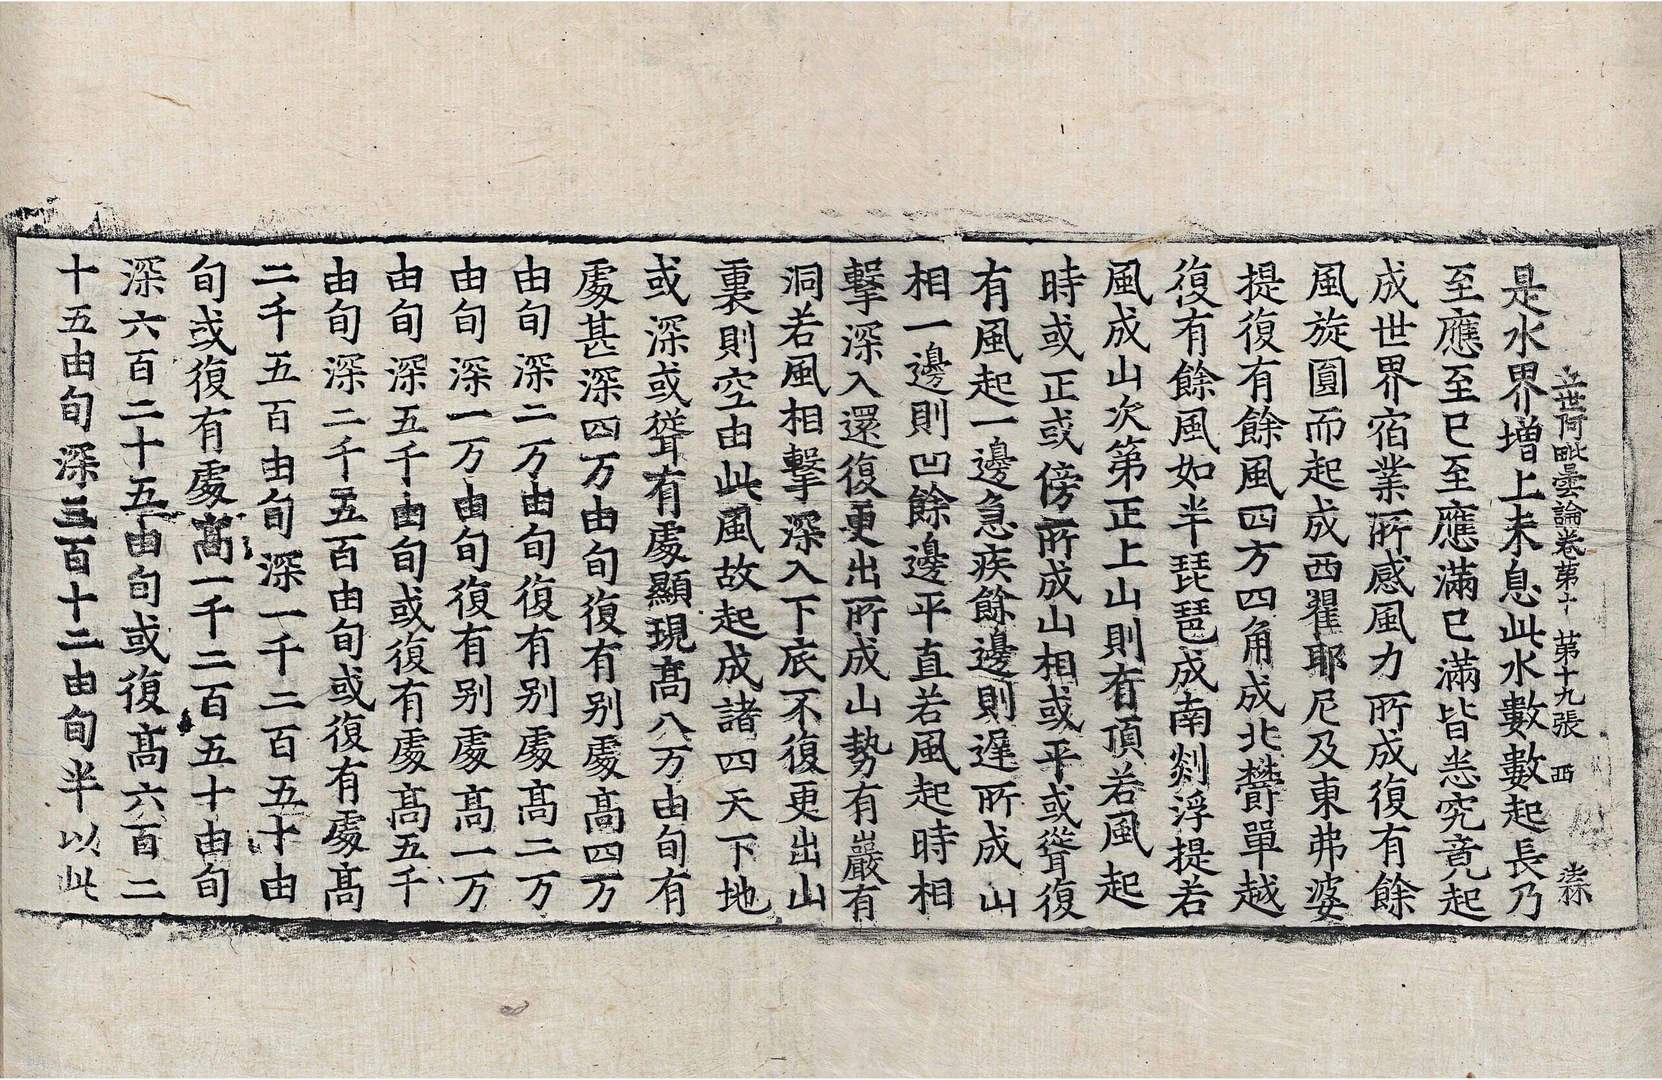 立世阿毗曇論卷第十 第十九張 西
是水界增上未息此水數數起長乃
至應至已至應滿已滿皆悉究竟起
成世界宿業所感風力所成復有餘
風旋圓而起成西瞿耶尼及東弗婆
提復有餘風四方四角成北欝單越
復有餘風如半琵琶成南剡浮提若
風成山次第正上山則有頂若風起
時或正或傍所成山相或平或聳復
有風起一邊急疾餘邊則遲所成山
相一邊則凹餘邊平直若風起時相
擊深入還復更出所成山勢有巖有
洞若風相擊深入下底不復更出山
裏則空由此風故起成諸四天下地
或深或聳有處顯現髙八万由旬有
處甚深四万由旬復有別處髙四万
由旬深二万由旬復有別處髙二万
由旬深一万由旬復有別處髙一万
由旬深五千由旬或復有處髙五千
由旬深二千五百由旬或復有處髙
二千五百由旬深一千二百五十由
旬或復有處髙一千二百五十由旬
深六百二十五由旬或復髙六百二
十五由旬深三百十二由旬半以此